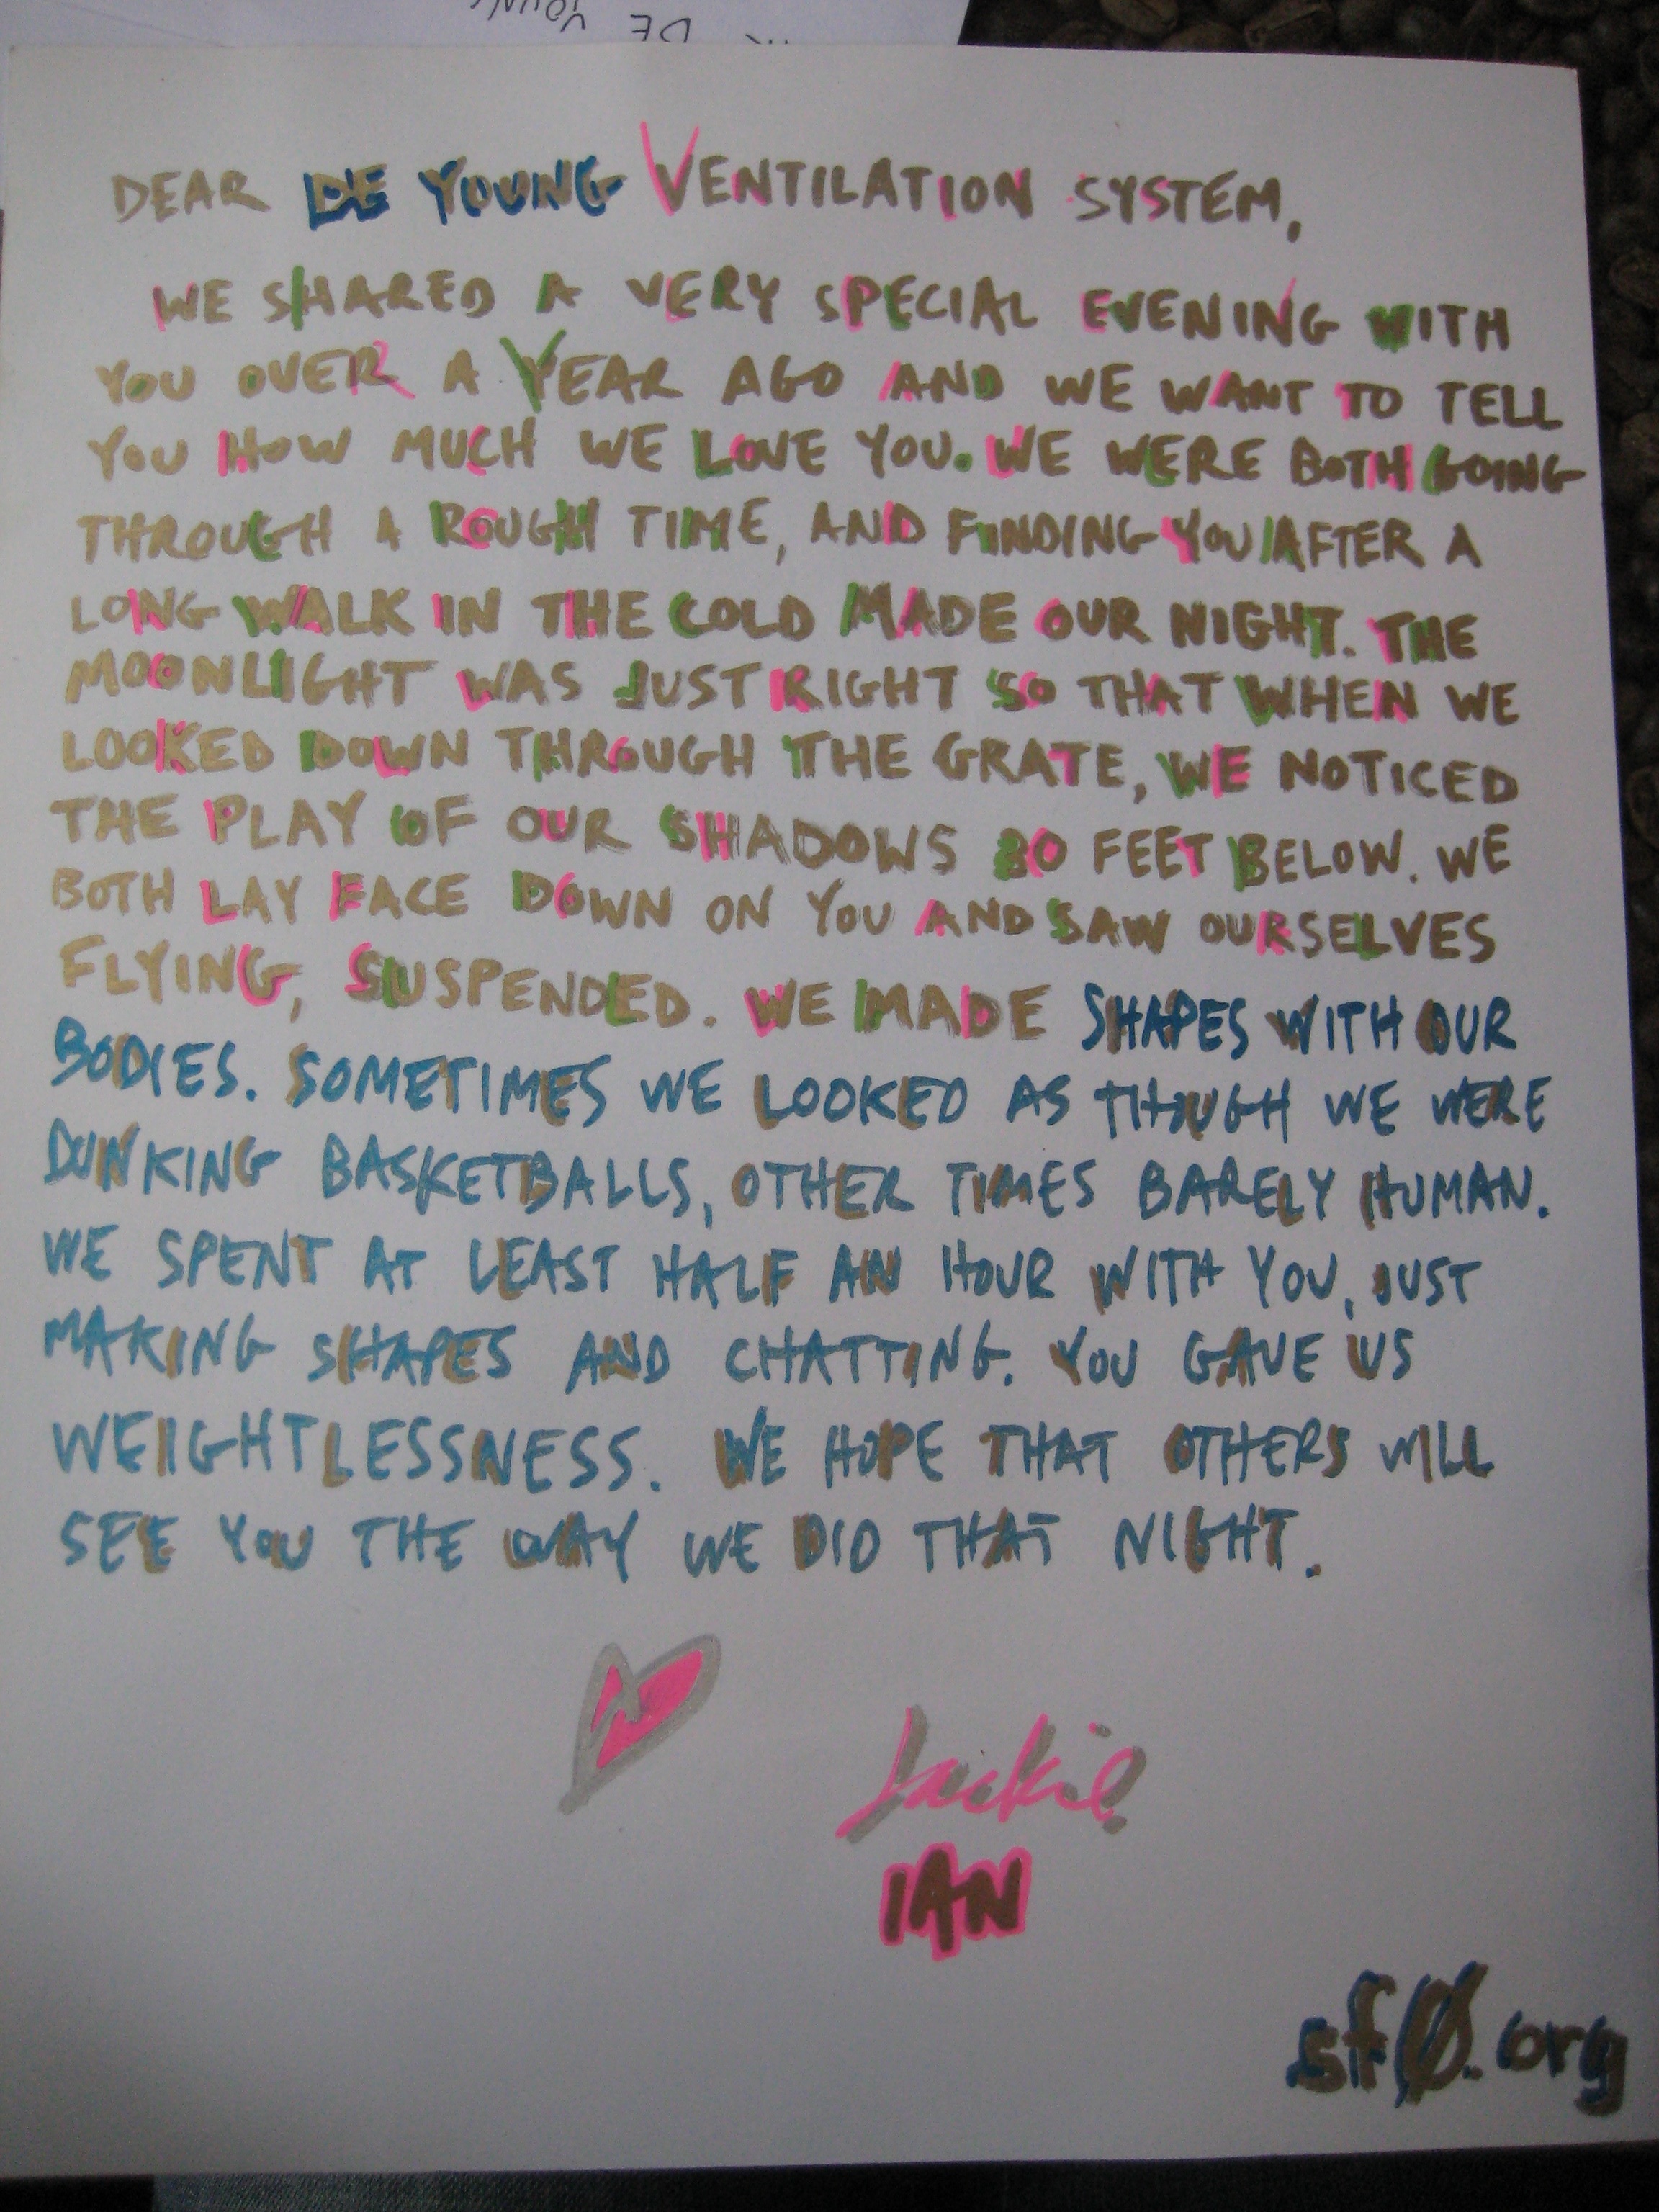 DE YOUNG
DEAR DE YOUNG VENTILATION SYSTEM,
WE SHARED A VERY SPECIAL EVENING WITH
YOU OVER A YEAR AGO AND WE WANT TO TELL
YOU HOW MUCH WE LOVE YOU. WE WERE BOTH GOING
THROUGH A ROUGH TIME, AND FINDING YOU AFTER A
LONG WALK IN THE COLD MADE OUR NIGHT. THE
MOONLIGHT WAS JUST RIGHT SO THAT WHEN WE
LOOKED DOWN THROUGH THE GRATE, WE NOTICED
THE PLAY OF OUR SHADOWS FEET BELOW. WE
BOTH LAY FACE DOWN ON YOU AND SAW OURSELVES
FLYING, SUSPENDED. WE MADE SHAPES WITH OUR
BODIES. SOMETIMES WE LOOKED AS THOUGH WE WERE
DUNKING BASKETBALLS, OTHER TIMES BARELY HUMAN.
WE SPENT AT LEAST HALF AN HOUR WITH YOU, JUST
MAKING SHAPES AND CHATTING. YOU GAVE US
WEIGHTLESSNESS. WE HOPE THAT OTHERS WILL
SEE YOU THE WAY WE DID THAT NIGHT.
Jackie
IAN
sfØ.org